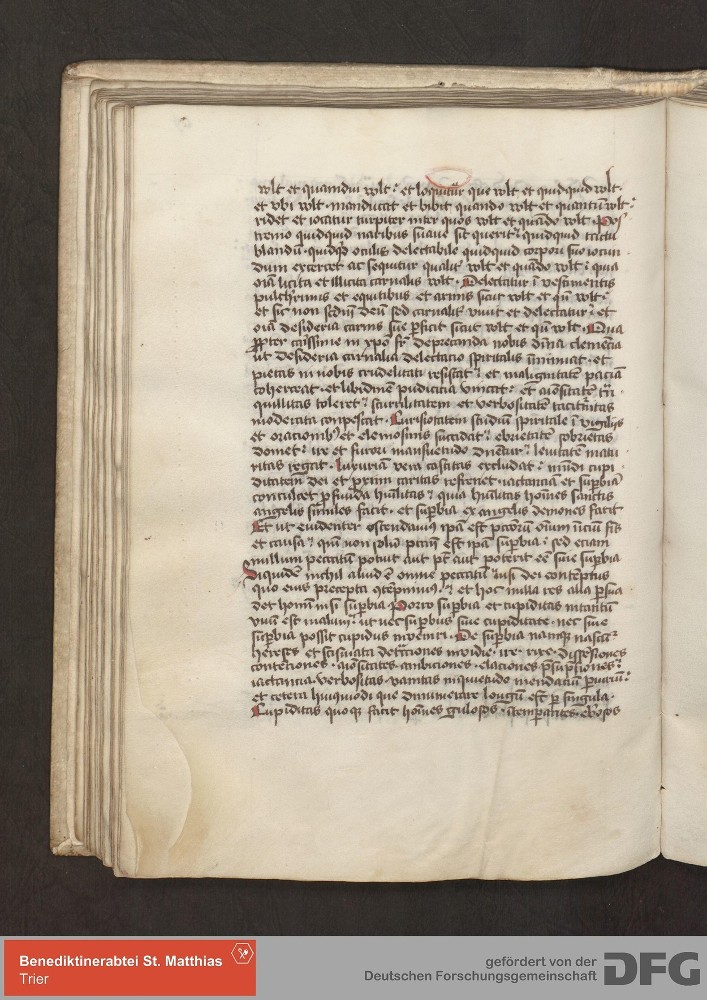 volt et quamdiu volt : et loquitur que volt et quidquid volt .
et vbi volt . manducat et bibit quando volt et quantū volt :
ridet et iocatur turpiter inter quos volt et quādo volt . Pos
tremo quidquid naribus suaue sit querit : quidquid tactu
blandū . quidqd oculis delectabile quidquid corpori suo iocun
dum exercet ac sequitur qualit volt et quādo volt : quia
oīa licita et illicita carnalis volt . Delectatur ī vestimentis
pulchrimis et equitibus et armis sicut volt et qn̄ volt :
et sic non scdm̄ deum sed carnalit viuit et delectatur : et
oīa desideria carnis sue pficit sicut volt et qn̄ volt . Qua
ppter carissime in xpo fr deprecanda nobis diuina clemēcia
ut desideria carnalia delectacio spiritalis īminuat . et
pietas in nobis crudelitati resistat : et malignitatē paciā
coherceat . et libidinē pudicicia vincat : et aīositatē trā
quillitas toleret : scurrilitatem et verbositatē taciturnitas
moderata conpescat . Curiositatem studium spiritale ī vigiliis
et oracionibꝫ et elemosinis succidat : ebrietatē sobrietas
domet : ire et furori mansuetudo dnetur : leuitatē matu
ritas regat . luxuriam vera castitas excludat : mūdi cupi
ditatem dei et pximi caritas refrenet . iactanciā et supbiā
conculcet pfunda hūilitas : quia hūilitas hoīes sanctis
angelis similes facit . et supbia ex angelis demones facit
Et ut euidenter ostendamus ipā est pctorū oīum inicium finis
et causa : quia non solū pctm̄ est ipā supbia : sed eciam
nullum peccatū potuit aut pt aut poterit eē sine supbia
Siquidē nichil aliud ē omne peccatū nisi dei contēptus
quo eius precepta cōtēpnimus : et hoc nulla res alia psua
det homī nisi supbia . Porro supbia et cupiditas intantū
vnū est malum . ut nec supbus sine cupiditate . nec sine
supbia possit cupidus inueniri . De supbia namqꝫ nascūt
hereses et scismata detractiones inuidie . ire . rixe . dissēsiones
contenciones . aīositates . ambiciones . elaciones psūpsiones :
iactancia . verbositas . vanitas inquietudo mendaciū piurium :
et cetera huiusmodi que dinumerare longū est p singula .
Cupiditas quoqꝫ facit hoīes gulosos . ītempantes . ebriosos
Benediktinerabtei St. Matthias
Trier
gefördert von der
Deutschen Forschungsgemeinschaft
DFG